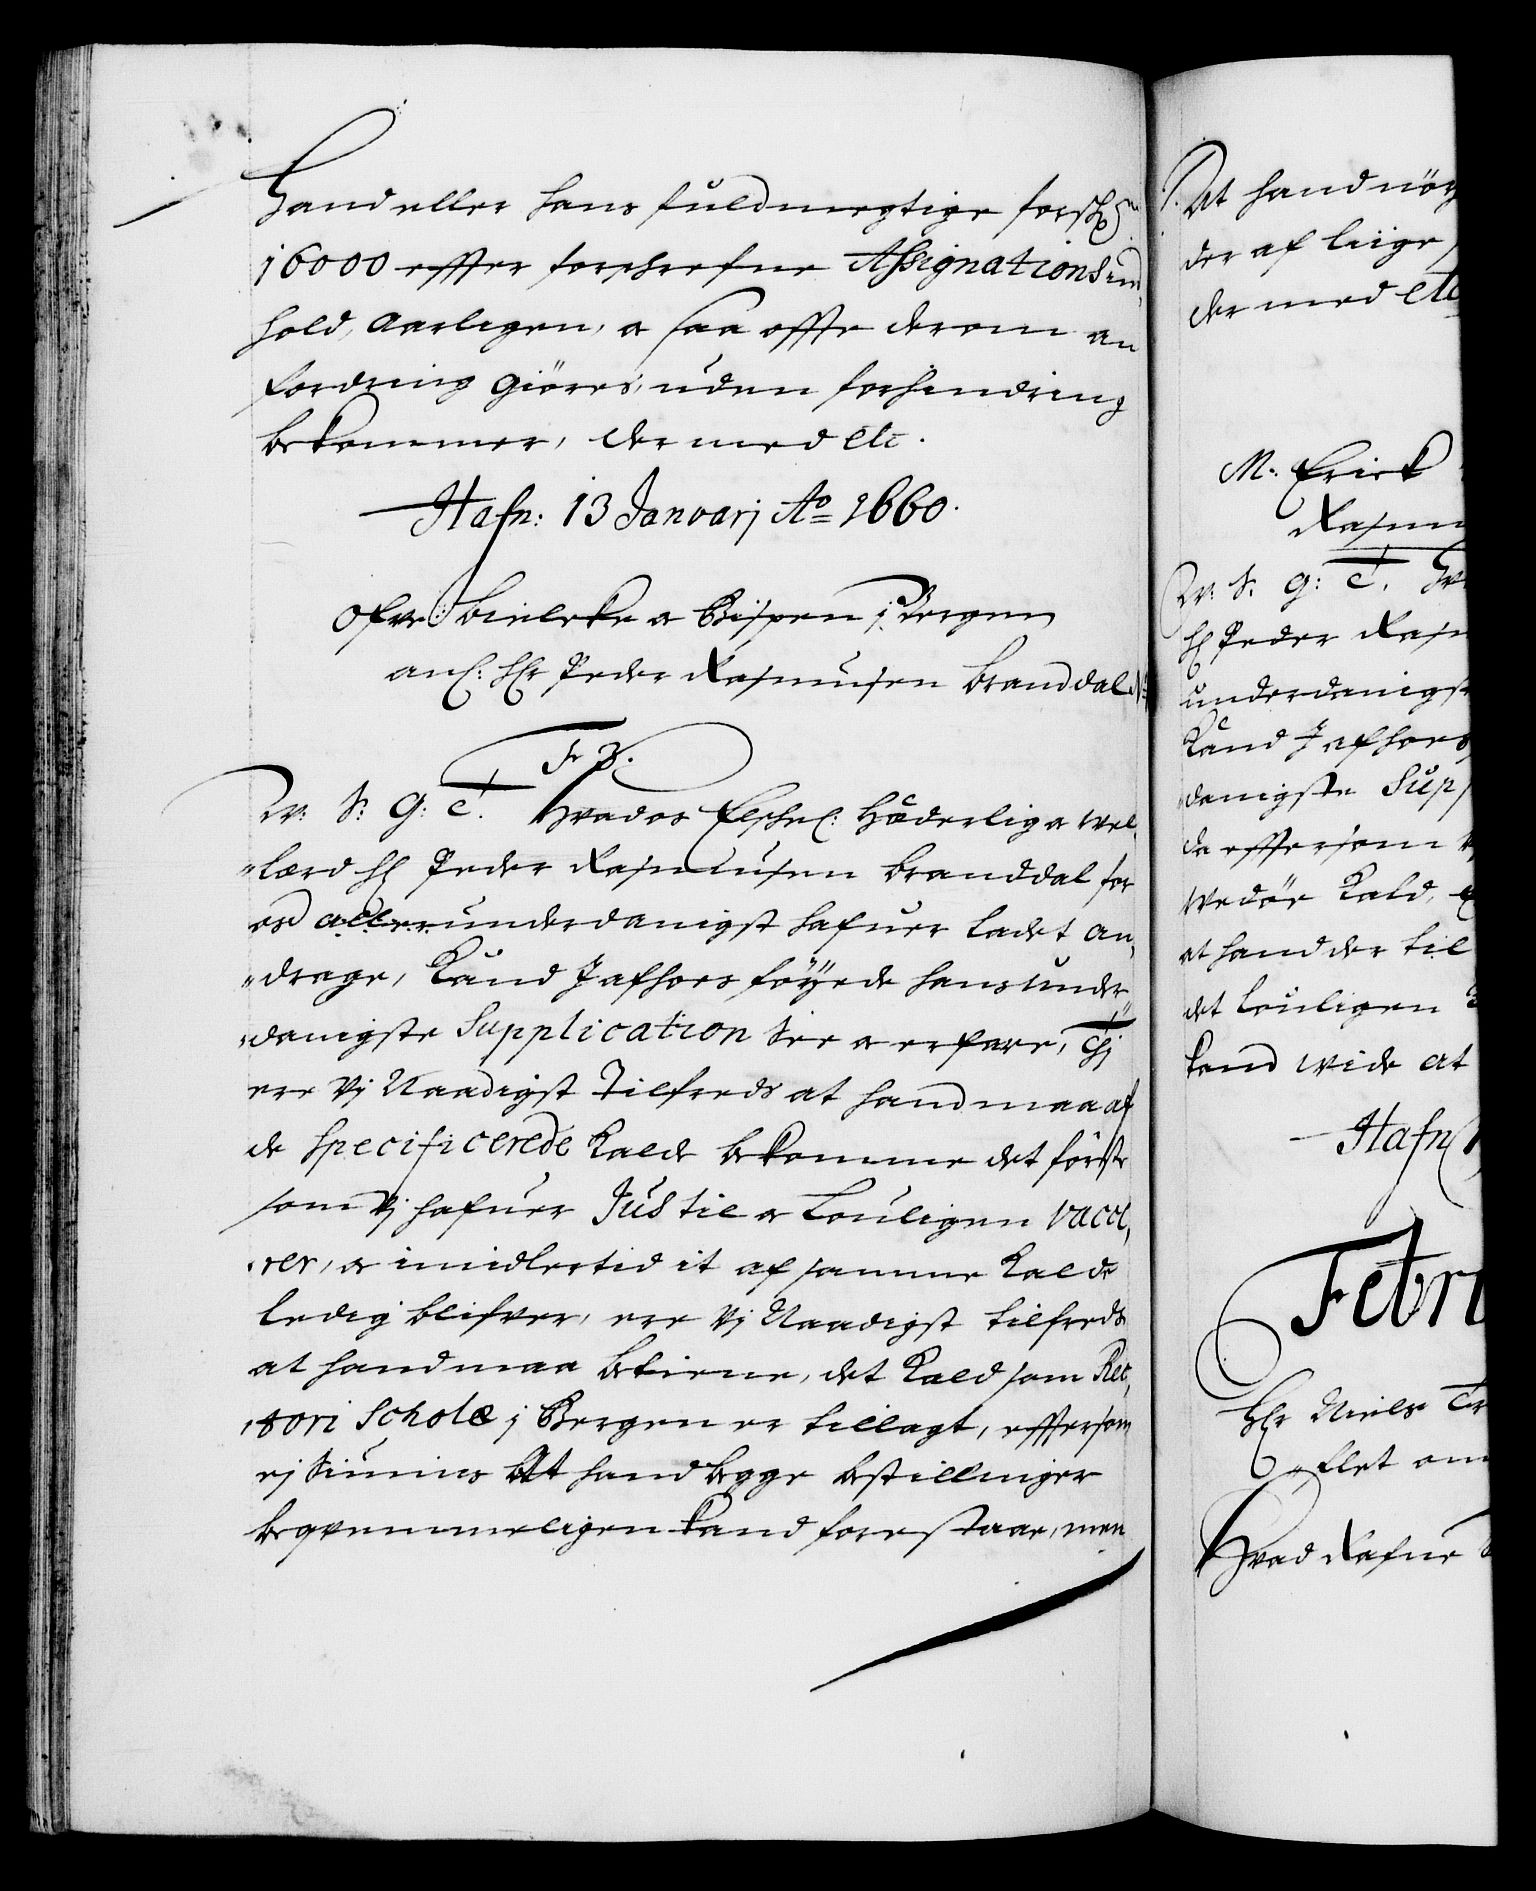 Hand eller hans fuldmegtige forschr:ne
16000 effter forschrefne Assignations ind,
hold, Aarligen, oc saa offte derom an
fordring giöres, uden forhindring
bekommer, Der med etc.
Hafn: 13 Januarj Ao 1660.
Ofve: Bielcke oc Bispen j Bergen
anl: Hr Peder Rasmusen Branddal
F 3.
W: S: G: T. Hvad os Elschel: Hæderlig oc wel,
"lærd Hr Peder Rasmusen Branddal for
os allerunderdanigst hafuer ladet an,
"drage, Kand J af hoes föyede hans under"
"danigste Supplication See oc erfare, Thj
ere Vj Naadigst Tilfreds at hand maa af
de Specificerede Kald bekomme det förste
som Vj hafuer Jus til oc Louligen vace,
,rer, oc imidlertid it af samme Kalde
ledig blifver, ere Vj Naadigst tilfreds
at hand maa betiene, det Kald som Rec,
,tori Scholæ j Bergen er tillagt, efftersom
ej Siunis At hand begge bestillinger
beqvemmeligen kand forestaae, men
At hand nör
der af liige
der med etc
M. Erick
Rasmu
W: S: G: T. Hv
Hr Peder Rasm
underdanigst
Kand J af hoes
danigste Sup
da efftersom
Wedöe Kald,
at hand der til
det Louligen
kand vide At
Hafn
Febru
Hr Niels Tr
flet om
Hvad Rafue